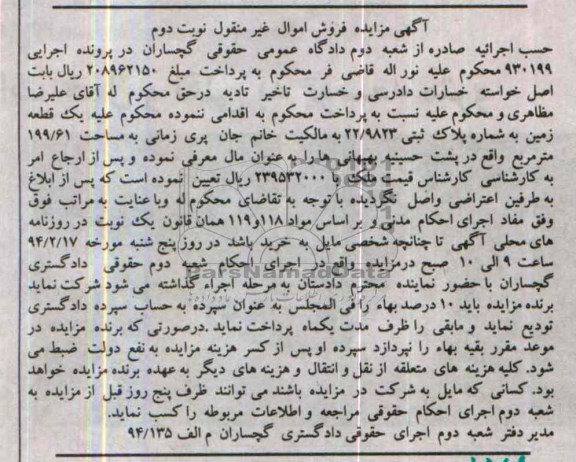 آگهی مزایده فروش اموال غیر منقول نوبت دوم
حسب اجرائیه صادره از شعبه دوم دادگاه عمومی حقوقی گچساران در پرونده اجرایی
۹۳۰۱۹۹ محکوم علیه نور اله قاضی فر محکوم به پرداخت مبلغ ۲۰۸۹۶۲۱۵۰ ریال بابت
اصل خواسته خسارات دادرسی و خسارت تاخیر تادیه درحق محکوم له آقای علیرضا
مظاهری و محکوم علیه نسبت به پرداخت محکوم به اقدامی ننموده محکوم علیه یک قطعه
زمین به شماره پلاک ثبتی ۲۲/۹۸۲۳ به مالکیت خانم جان پری زمانی به مساحت ۱۹۹/۶۱
مترمربع واقع در پشت حسینیه بهبهانی ها را به عنوان مال معرفی نموده و پس از ارجاع امر
به کارشناسی کارشناس قیمت ملک را ۲۳۹۵۳۲۰۰۰ ریال تعیین نموده است که پس از ابلاغ
به طرفین اعتراضی واصل نگردیده با توجه به تقاضای محکوم له وبا عنایت به مراتب فوق
وفق مفاد اجرای احکام مدنی و بر اساس مواد ۱۱۸و ۱۱۹ همان قانون یک نوبت در روزنامه
های محلی آگهی تا چنانچه شخصی مایل به خرید باشد در روز پنج شنبه مورخه ۹۴/۲/۱۷
ساعت ۹ الی ۱۰ صبح درمزایده واقع در اجرای احکام شعبه دوم حقوقی دادگستری
گچساران با حضور نماینده محترم دادستان به مرحله اجراء گذاشته می شود شرکت نماید
برنده مزایده باید ۱۰ درصد بهاء را فی المجلس به عنوان سپرده به حساب سپرده دادگستری
تودیع نماید و مابقی را ظرف مدت یکماه پرداخت نماید .درصورتی که برنده مزایده در
موعد مقرر بقیه بهاء را نپردازد سپرده او پس از کسر هزینه مزایده به نفع دولت ضبط می
شود. کلیه هزینه های متعلقه از نقل و انتقال و هزینه های دیگر به عهده برنده مزایده خواهد
بود. کسانی که مایل به شرکت در مزایده باشند می توانند ظرف پنج روز قبل از مزایده به
شعبه دوم اجرای احکام حقوقی مراجعه و اطلاعات مربوطه را کسب نماید.
مدیر دفتر شعبه دوم اجرای حقوقی دادگستری گچساران م الف ۹۴/۱۳۵
ParsNamadData